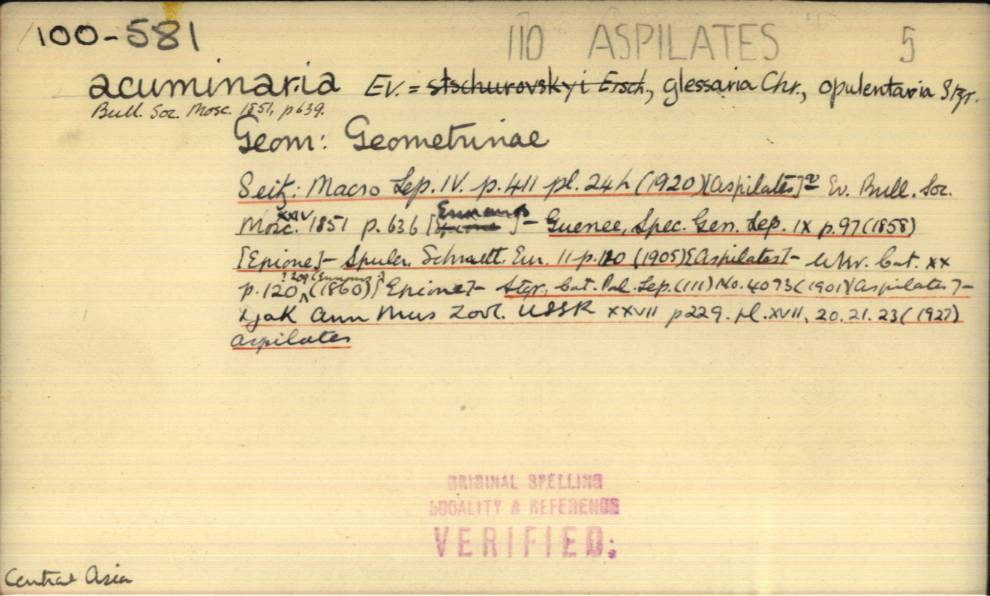 100-581 110 ASPILATES 5
acuminaria Ev. = stschurovskyi Ersch, glessaria Chr., opulentaria Stgr.
Bull. Soc. Mosc. 1851, p 639.
Geom: Geometrinae
Seitz: Macro Lep. IV. p. 411 pl. 24h (1920) [Aspilates] Ev. Bull. Soc.
Mosc. XXIV 1851 p. 636 [Ennomos] - Guenee, Spec. Gen. Lep. IX p. 97 (1858)
[Epione] - Spuler, Schmett. Eur. II p. 120 (1905) [Aspilates] - Cat. XX
p. 120 (1860) Epione] - Stgr. Cat. Pal. Lep. (III) No. 4073 (1901) [Aspilates] -
Djak Ann Mus Zool. USSR XXVII p 229. pl. XVII, 20. 21. 23 (1927)
Aspilates
ORIGINAL SPELLING
LOCALITY & REFERENCE
VERIFIED:
Central Asia